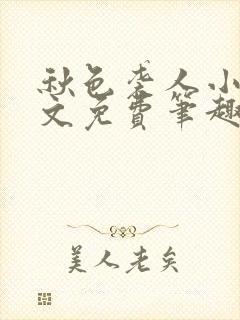 秋色袭人小
文免費筆趣
美人老矣